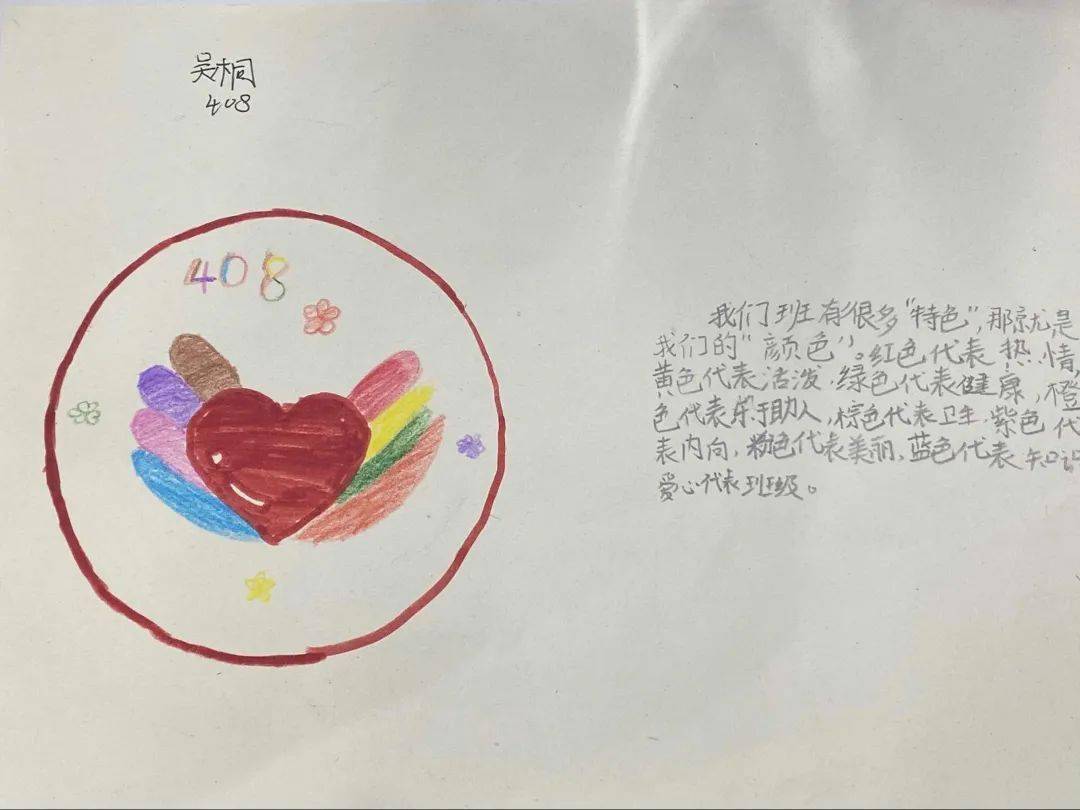 吴桐
408
408
我们班有很多“特色”,那就是
我们的“颜色”。红色代表热情,
黄色代表活泼.绿色代表健康,橙
色代表乐于助人,棕色代表卫生.紫色代
表内向,粉色代表美丽,蓝色代表知识
爱心代表班级。